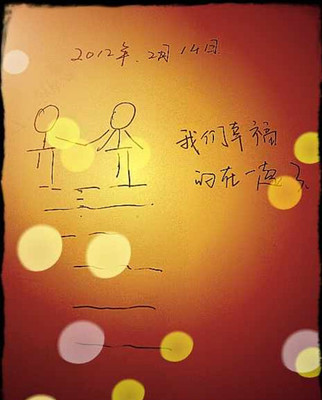 2012年.2月14日
我们幸福
的在一起了